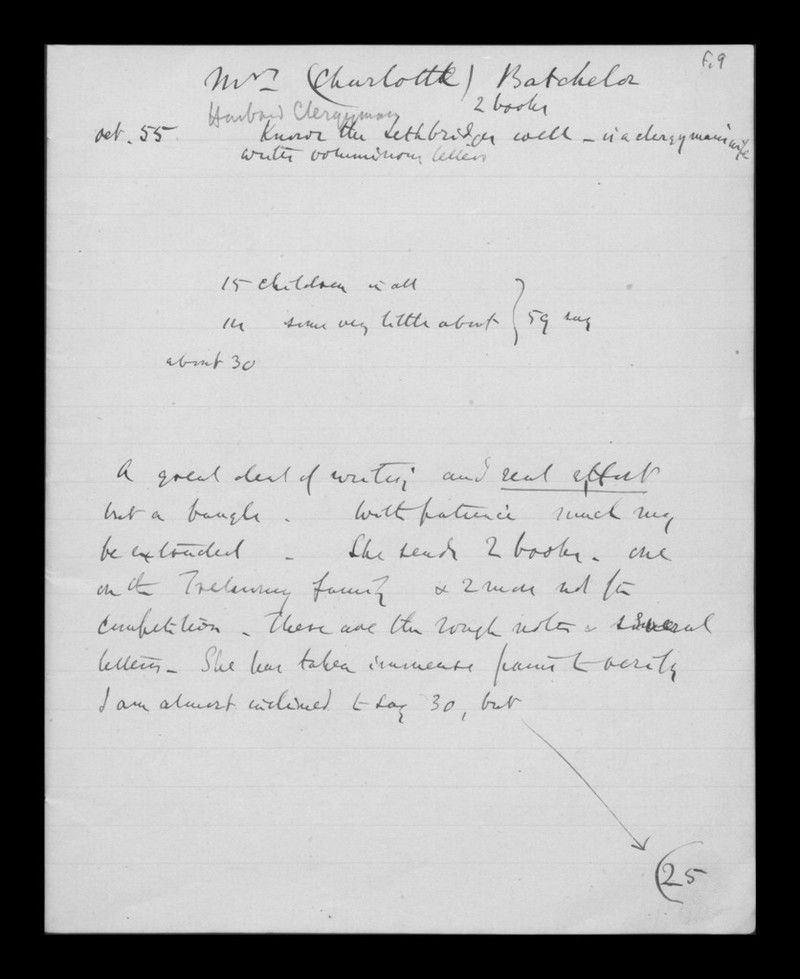 F.9
Mrs (Charlotte) Batchelor
2 books
Husband Clergyman
oct. 55 Knows the Lethbridges well – is a clergyman's wife
writes voluminous letters
15 children in all
in some very little about } 59 say
about 30
A great deal of writing and real effort
but a bungle. With patience much may
be extracted – She sends 2 books – one
on the Trelawny family & 2 more not for
competition – these are the rough notes & several
letters – She has taken immense pains to verify
I am almost inclined to say 30, but
(25